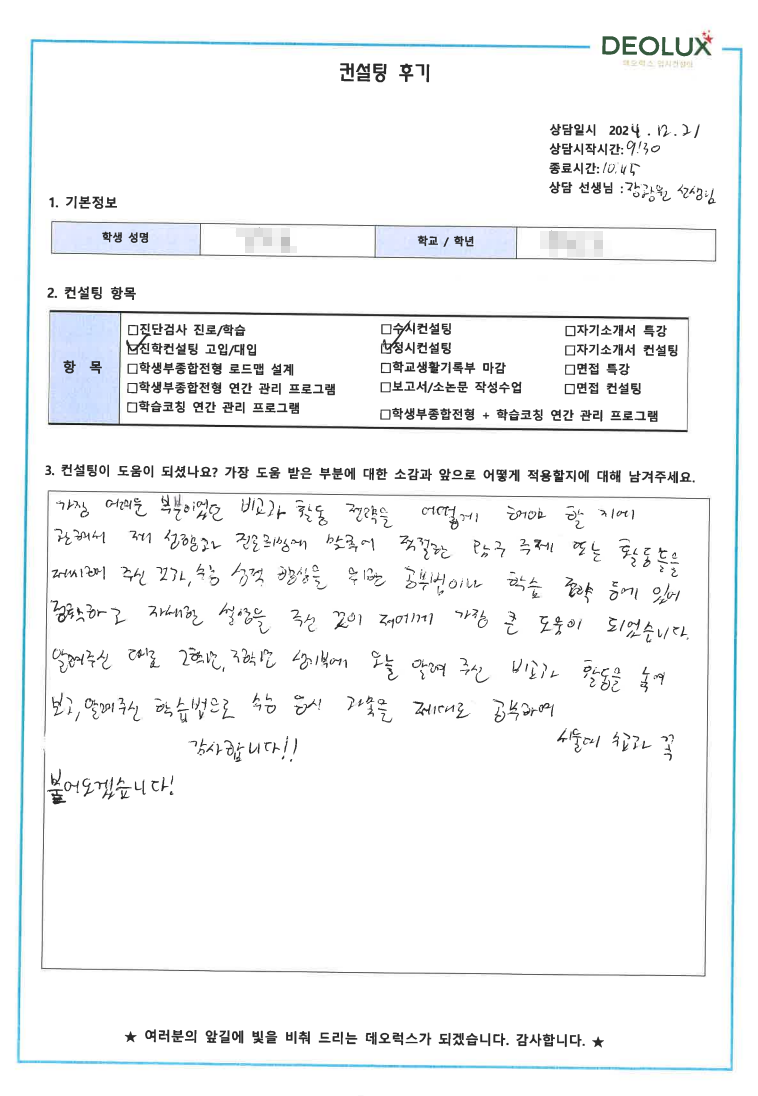 DEOLUX
데오럭스 입시컨설팅
컨설팅 후기
상담일시 2024.12.21
상담시작시간:9:30
종료시간:10:45
상담 선생님 : 선생님
1. 기본정보
학생 성명 학교 / 학년
2. 컨설팅 항목
항 목
□진단검사 진로/학습 □수시컨설팅 □자기소개서 특강
☑진학컨설팅 고입/대입 ☑정시컨설팅 □자기소개서 컨설팅
□학생부종합전형 로드맵 설계 □학교생활기록부 마감 □면접 특강
□학생부종합전형 연간 관리 프로그램 □보고서/소논문 작성수업 □면접 컨설팅
□학습코칭 연간 관리 프로그램 □학생부종합전형 + 학습코칭 연간 관리 프로그램
3. 컨설팅이 도움이 되셨나요? 가장 도움 받은 부분에 대한 소감과 앞으로 어떻게 적용할지에 대해 남겨주세요.
가장 어려운 부분이었던 비교과 활동 전략을 어떻게 해야 할 지에
관해서 제 성향과 진로희망에 맞추어 적절한 탐구 주제 또는 활동들을
제시해 주신 것과, 수능 성적 향상을 위한 공부법이나 학습 전략 등에 있어
정확하고 자세한 설명을 주신 것이 저에게 가장 큰 도움이 되었습니다.
알려주신 대로 2학년, 3학년 생기부에 오늘 알려 주신 비교과 활동을 녹여
보고, 알려주신 학습법으로 수능 응시 과목을 제대로 공부하여
감사합니다!! 서울대 꼭
붙어오겠습니다!
★ 여러분의 앞길에 빛을 비춰 드리는 데오럭스가 되겠습니다. 감사합니다. ★